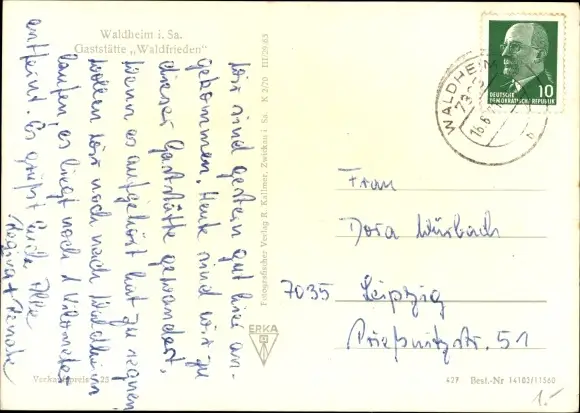 Waldheim i. Sa.
Gaststätte „Waldfrieden"
Wir sind gestern gut hier an-
gekommen. Heute sind wir zu
dieser Gaststätte gewandert.
Wenn es aufgehört hat zu regnen,
wollen wir noch nach Waldheim
laufen, es liegt noch 1 Kilometer
entfernt. Es grüßt Euch alle
Regina + Renate
Verkaufspreis
Fotografischer Verlag R. Kallmer, Zwickau i. Sa. K 2/70 III/29/65
ERKA
10
DEUTSCHE
DEMOKRATISCHE REPUBLIK
WALDHEIM
Frau
Dora Würbach
7035 Leipzig
Prießnitzstr. 51
427 Best.-Nr 14103/11560
1.-